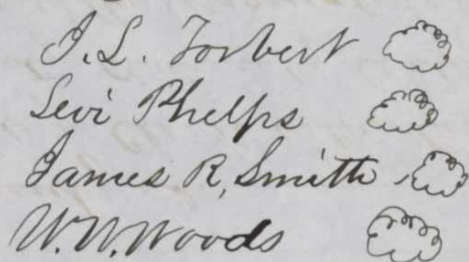 J. L. Torbert
Levi Phelps
James R, Smith
W. W. Woods